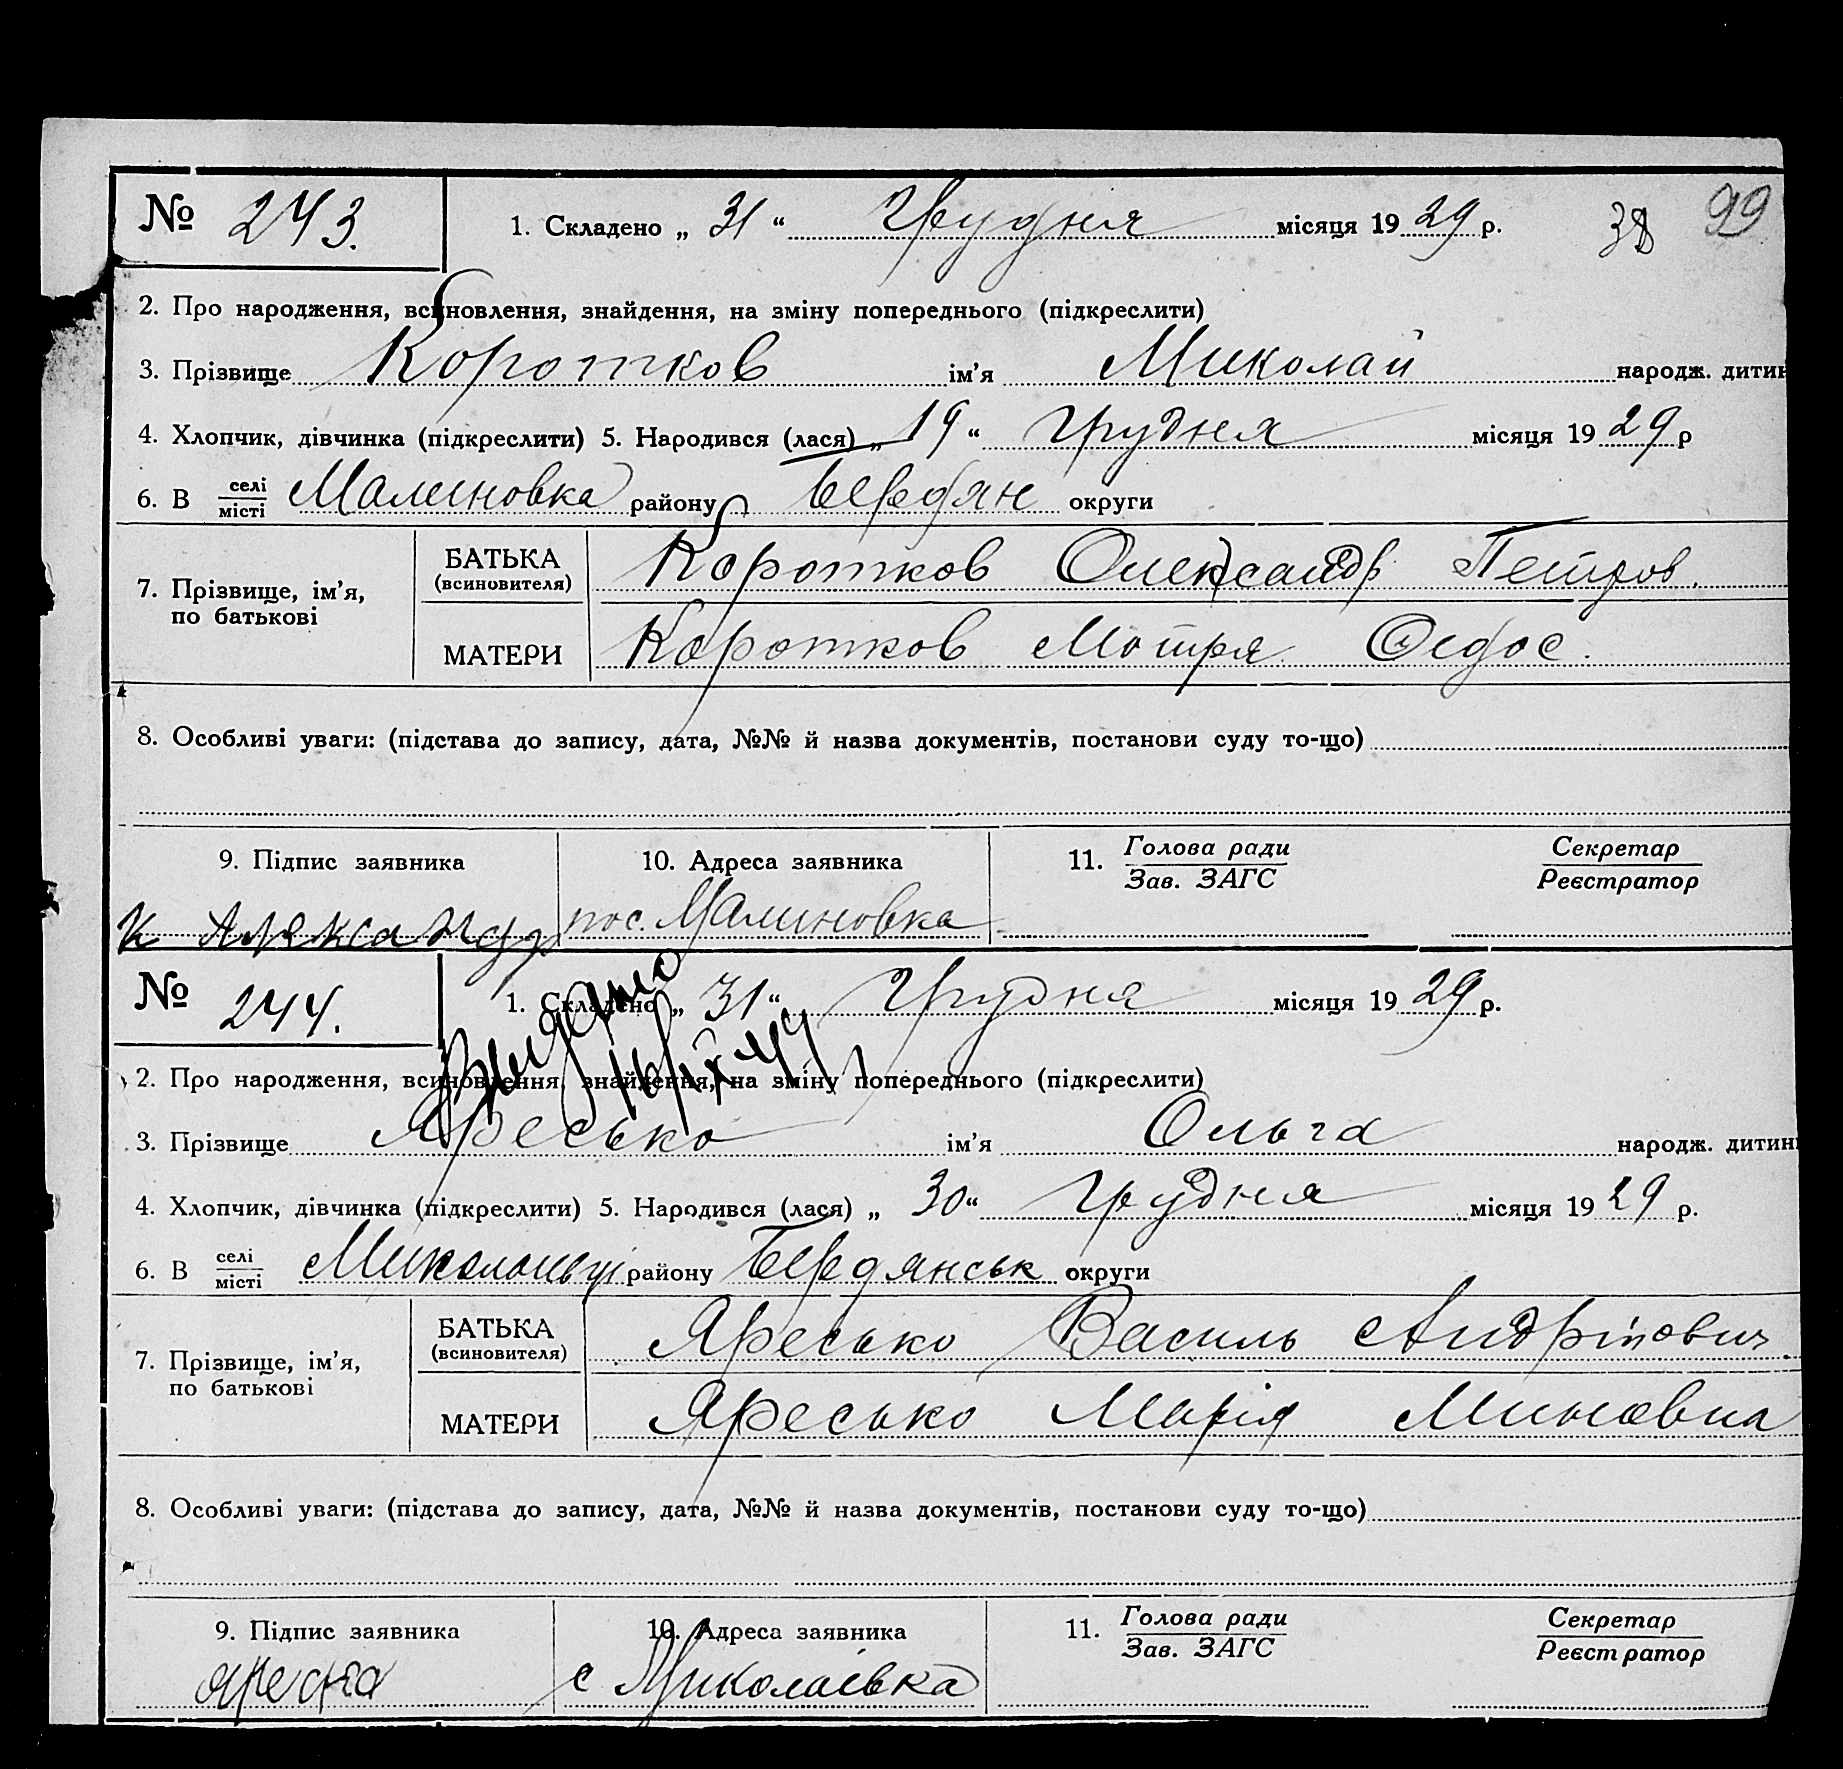 № 243. 1. Складено „ 31 “ Грудня місяця 19 29 р. 99
2. Про народження, всиновлення, знайдення, на зміну попереднього (підкреслити)
3. Прізвище Коротков ім’я Миколай народж. дитин
4. Хлопчик, дівчинка (підкреслити) 5. Народився (лася) „ 19 “ грудня місяця 19 29 р
6. В селі місті Малиновка району Бердян округи
7. Прізвище, ім’я, по батькові
БАТЬКА (всиновителя) Коротков Олександр Петров.
МАТЕРИ Коротков Мотря Федос.
8. Особливі уваги: (підстава до запису, дата, №№ й назва документів, постанови суду то-що)
9. Підпис заявника 10. Адреса заявника 11. Голова ради Секретар
Зав. ЗАГС Реєстратор
К Александр пос. Малиновка
№ 244. 1. Складено „ 31 “ Грудня місяця 19 29 р.
Видано
16/IX 44
2. Про народження, всиновлення, знайдення, на зміну попереднього (підкреслити)
3. Прізвище Яресько ім’я Ольга народж. дитин
4. Хлопчик, дівчинка (підкреслити) 5. Народився (лася) „ 30 “ грудня місяця 19 29 р.
6. В селі місті району Бердянськ округи
7. Прізвище, ім’я, по батькові
БАТЬКА (всиновителя) Яресько Василь Андріпович
МАТЕРИ Яресько Марія Миновна
8. Особливі уваги: (підстава до запису, дата, №№ й назва документів, постанови суду то-що)
9. Підпис заявника 10. Адреса заявника 11. Голова ради Секретар
Зав. ЗАГС Реєстратор
с Миколаівка